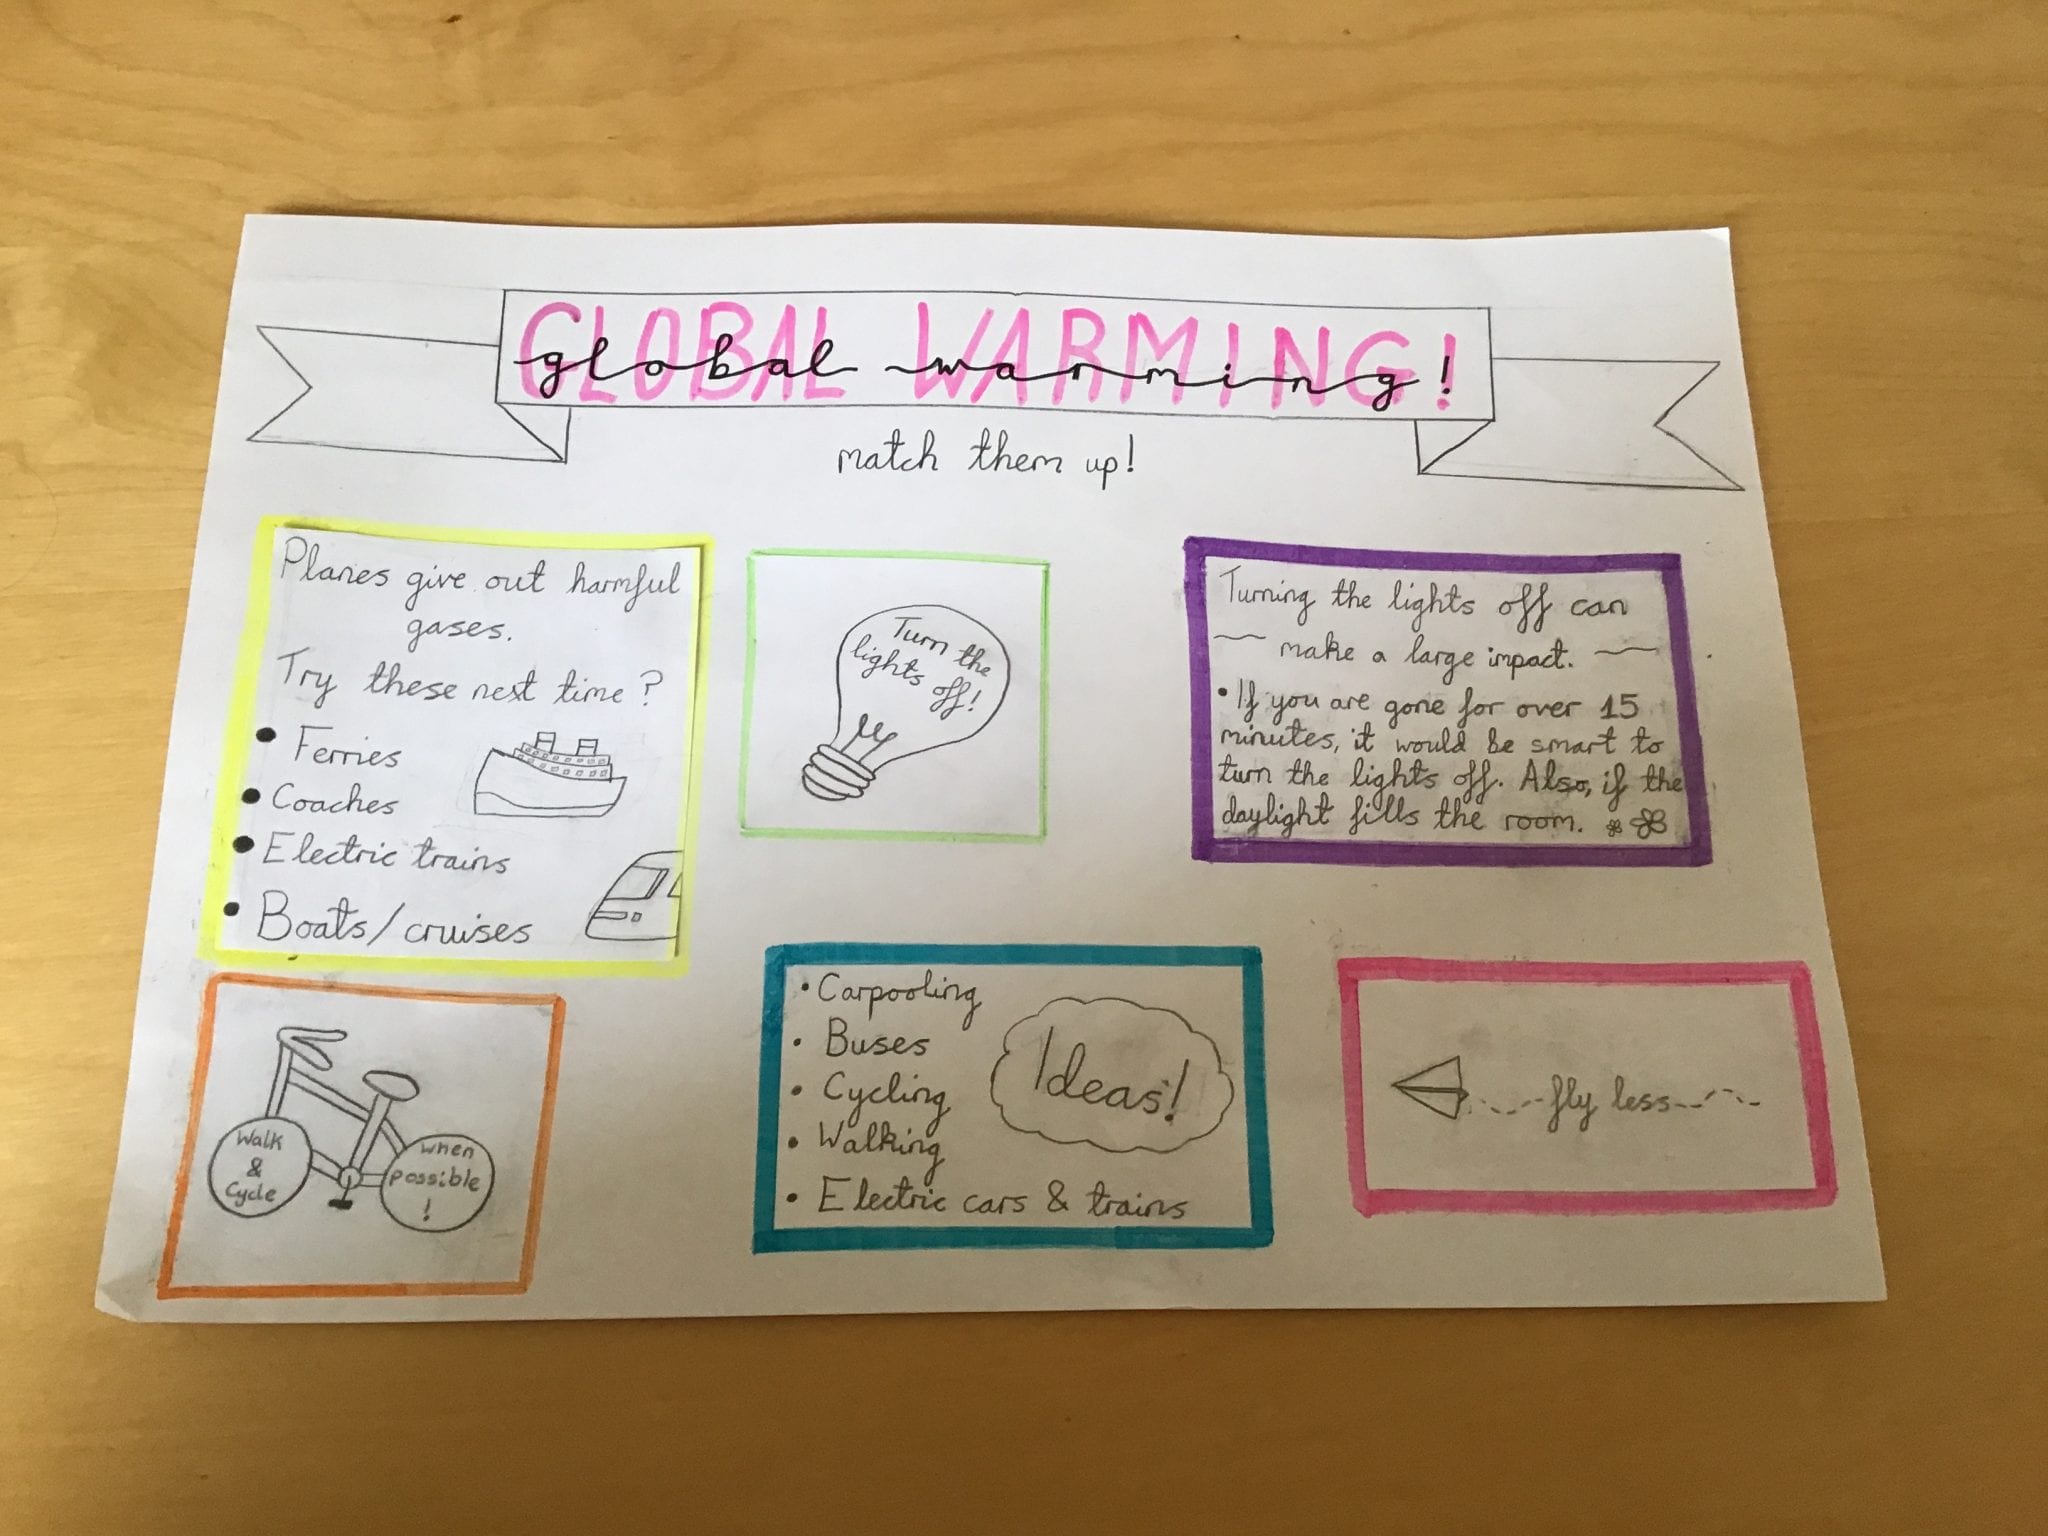 GLOBAL WARMING!
global warming!
match them up!
Planes give out harmful
gases.
Try these next time?
• Ferries
• Coaches
• Electric trains
• Boats/cruises
Turn the
lights
off!
Turning the lights off can
make a large impact.
• If you are gone for over 15
minutes, it would be smart to
turn the lights off. Also, if the
daylight fills the room.
Walk
&
Cycle
when
possible
!
• Carpooling
• Buses
• Cycling
• Walking
• Electric cars & trains
Ideas!
fly less